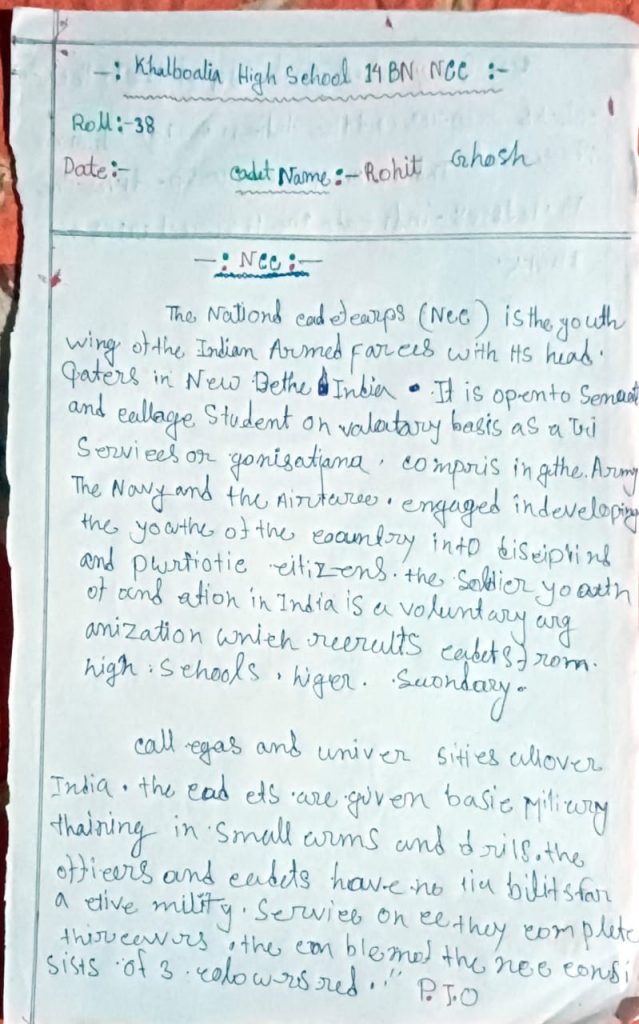 -: Khalboalia High School 14 BN NCC :-
Roll:-38
Date:- Cadet Name:- Rohit Ghosh
-: NCC :-
The Nationd cadetcarps (Nec) is the youth
wing of the Indian Armed farces with Hs head.
Qaters in New Dethe India . It is opento
and callage Student on valutary basis as a Tri
Services or gonisatiana . compris ingthe. Army
The Navy and the Airfarce. engaged indeveloping
the youthe of the country into disciplind
and purtiotic citizens. the Soldier youth
of and ation in India is a voluntary arg
anization which recruits cadets from.
high . Schools , higer . Suondary.
call egas and univer sities allover
India . the cad ets are given basic military
thaining in small arms and drills. the
officers and cadets have no lia bilitsfar
a ctive military . Service on ce they complete
their cours , the em blemof the ncc consi
sists of 3 colowrs red . "
P.T.O